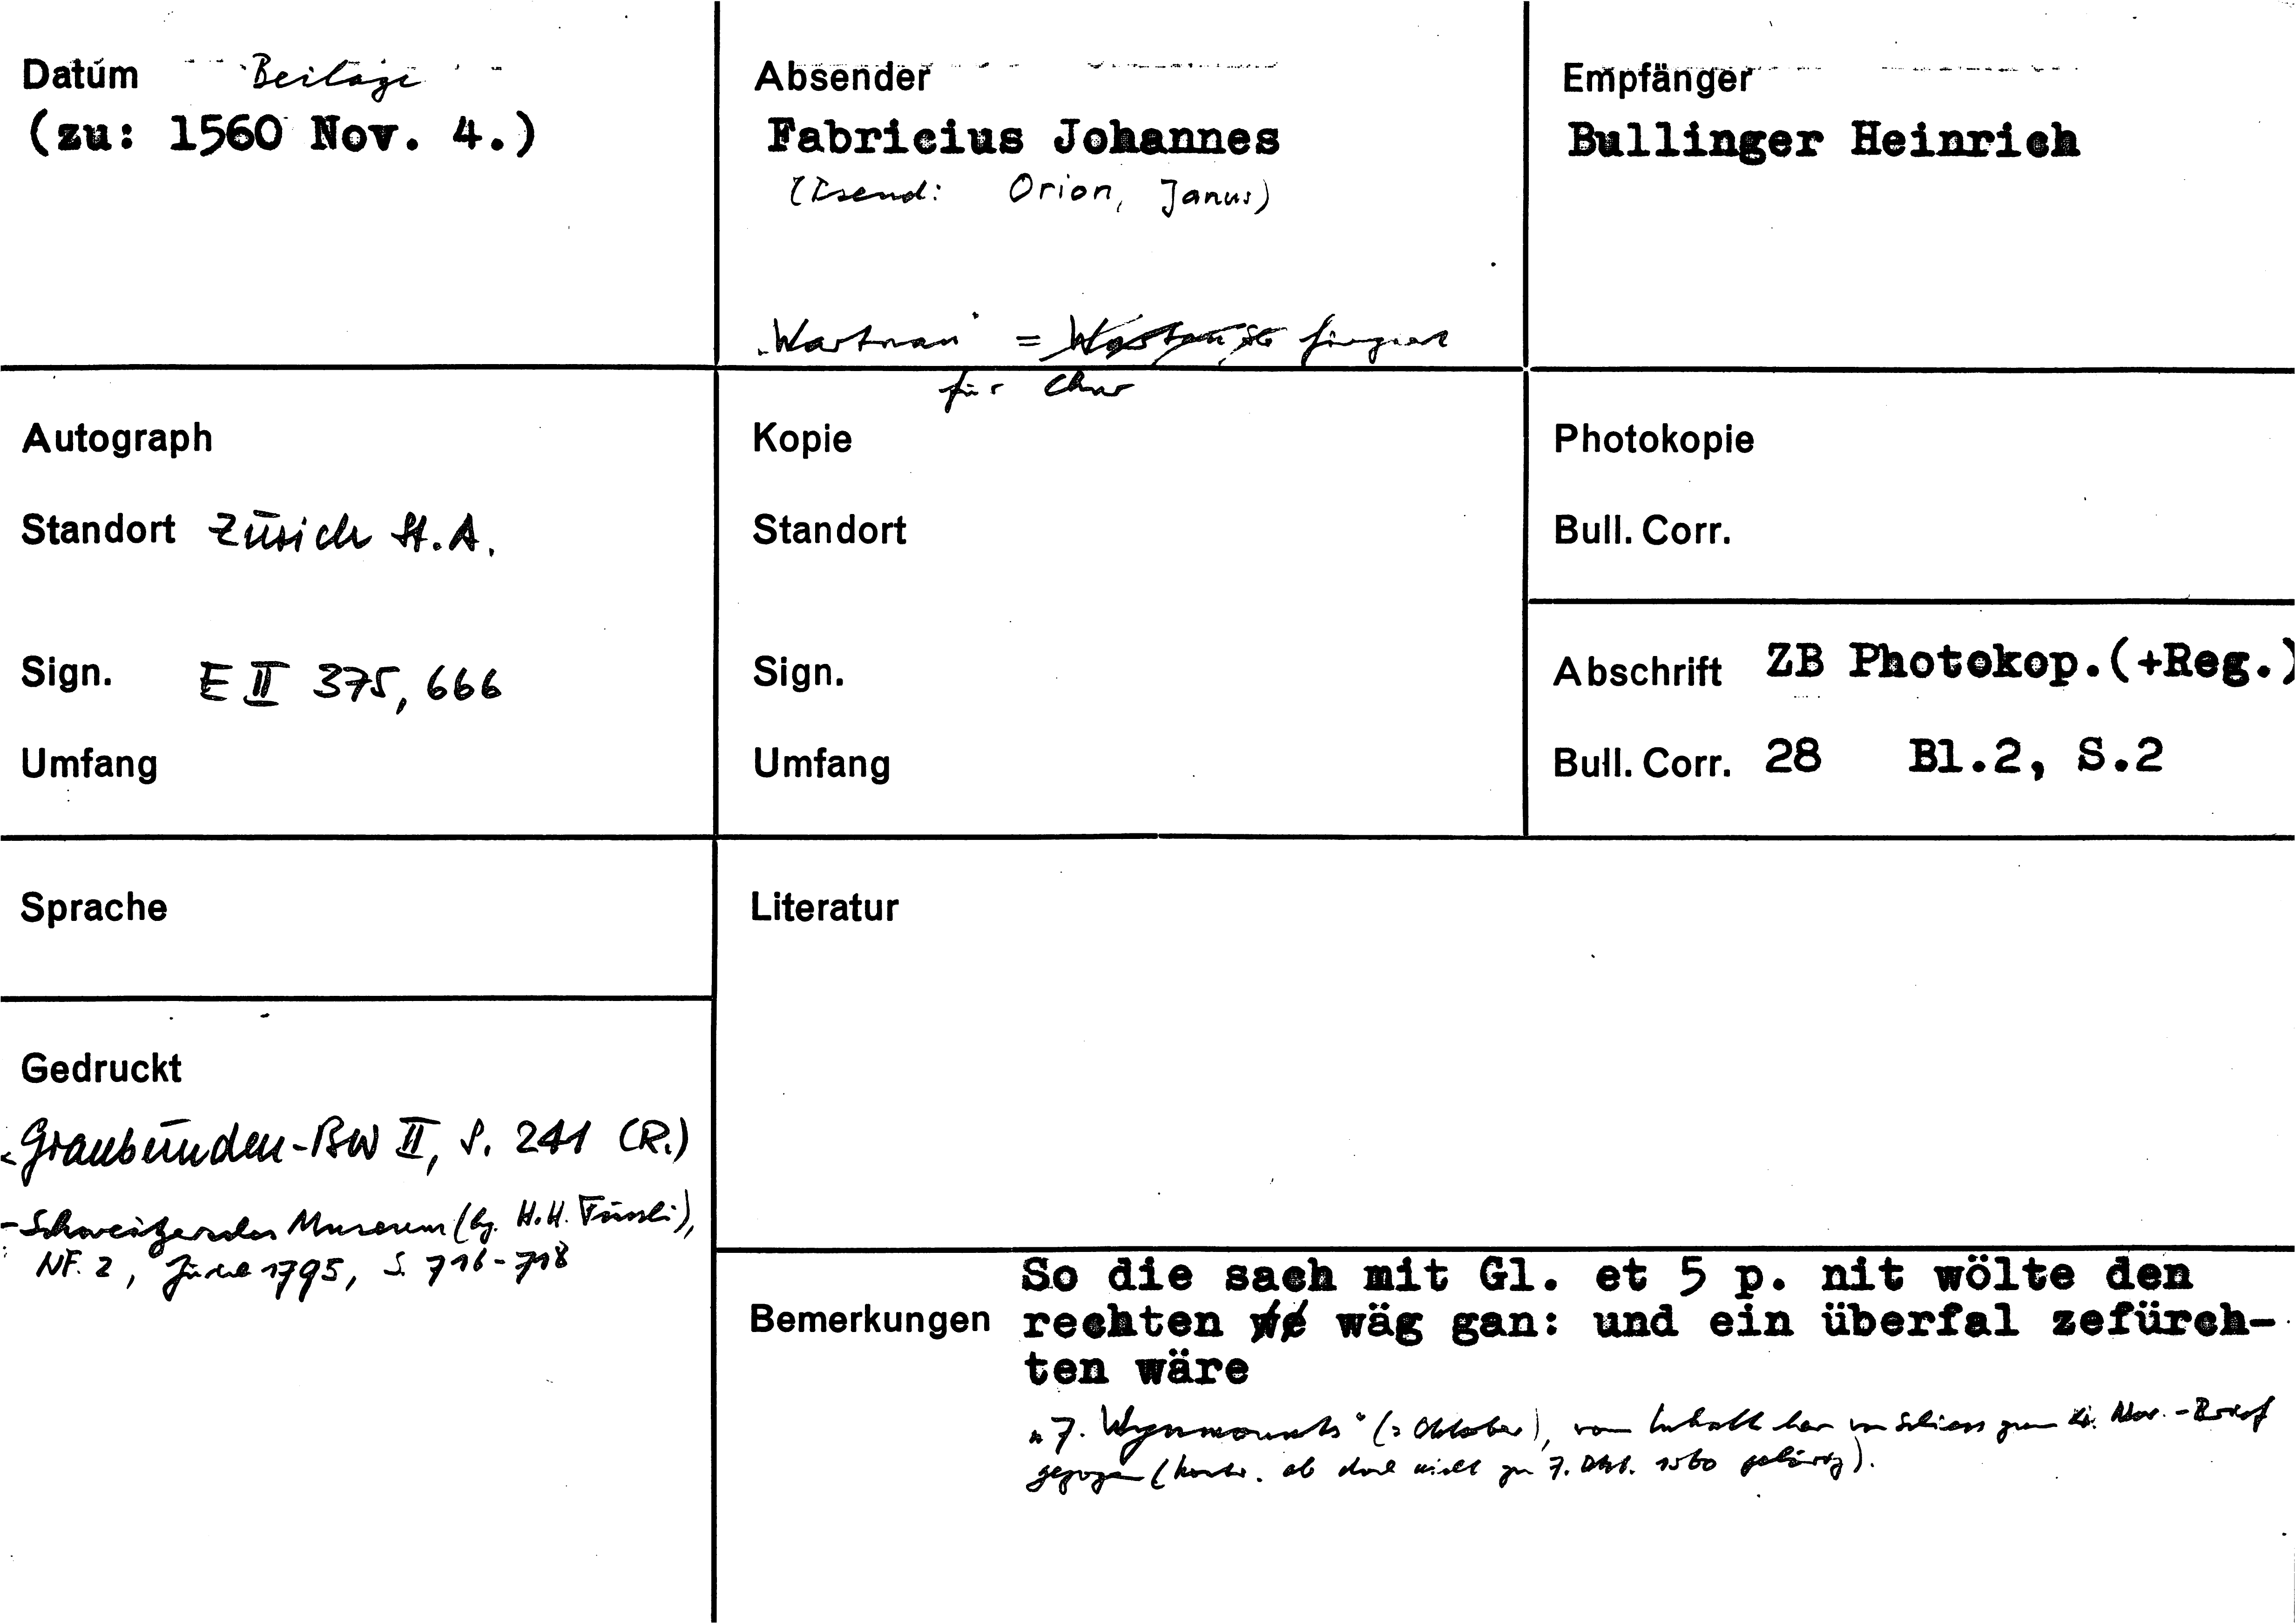 Datum Beilage
(zu: 1560 Nov. 4.)
Absender
Fabricius Johannes
(Pseud: Orion, Janus)
"Wartman" = fingiert
für Chur
Empfänger
Bullinger Heinrich
Autograph
Standort Zürich St.A.
Sign. E II 375, 666
Umfang
Kopie
Standort
Sign.
Umfang
Photokopie
Bull. Corr.
Abschrift ZB Photokop.(+Reg.)
Bull. Corr. 28 Bl.2, S.2
Sprache
Literatur
Gedruckt
- Graubünden-BW II, S. 241 (R.)
- Schweitzersches Museum (hg. H.H. Füssli),
NF. 2, Zürich 1795, S. 716-718
Bemerkungen
So die sach mit Gl. et 5 p. nit wölte den
rechten wäg gan: und ein überfal zefürch-
ten wäre
"7. Wynmonats" (= Oktober), vom Inhalt her von Schiess zum 4. Nov.-Brief
gezogen (kontr. ob doch nicht zu 7. Okt. 1560 gehörig).